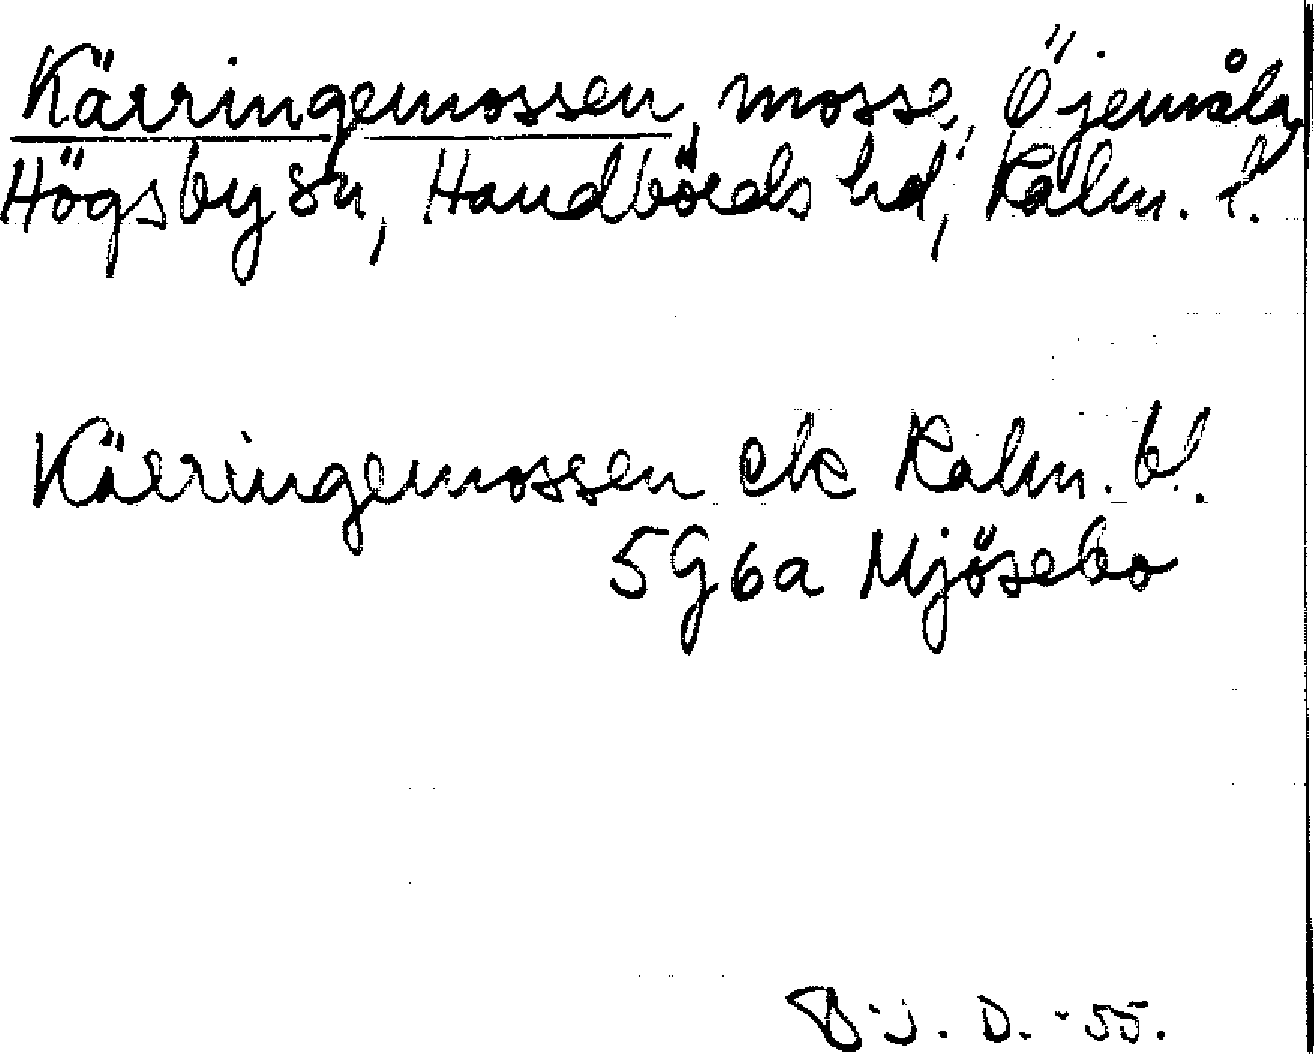 Kärringemossen, mosse, Öjemåla,
Högsby sn, Handbörds hd, Kalm. l.
Kärringemossen ek Kalm. bl.
5G6a Mjösebo
B.J.D. -55.